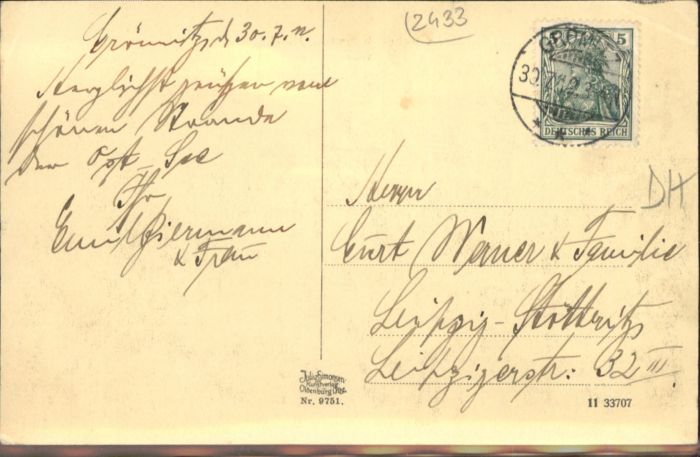 Grömitz, d. 30.7.12.
Herzlichst grüßen vom
schönen Strande
der Ost-See
Ihr
Emil Biermann
& Frau
12433
GRÖMITZ
30.7.12
5
DEUTSCHES REICH
DH
Herrn
Curt Werner & Familie
Leipzig-Stötteritz
Leipzigerstr: 32 III
Jul. Simonsen
Kunstverlag
Oldenburg i/Hol.
Nr. 9751.
11 33707